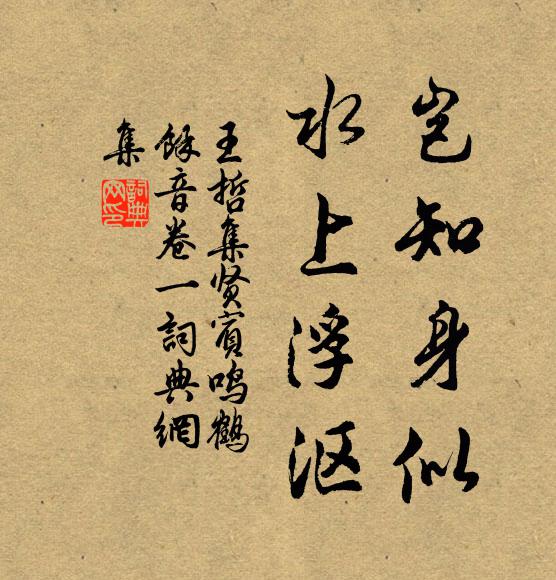 岂知身似
水上浮沤
王哲集贤宾鸣鹤
馀音卷一詞典網
集
詞典
网印